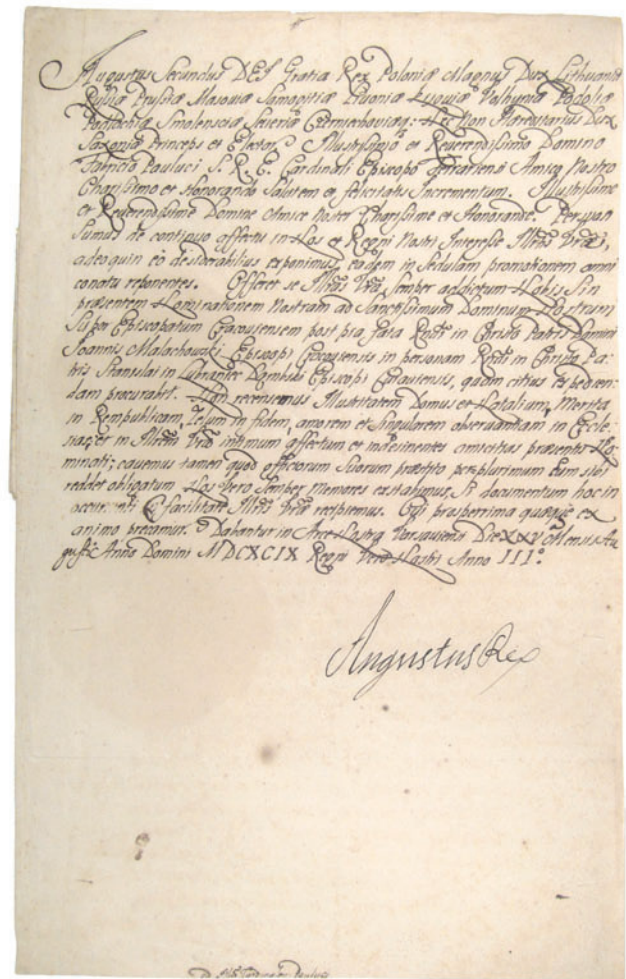 Augustus Secundus DEI Gratia Rex Poloniæ Magnus Dux Lithuaniæ
Russiæ Prussiæ Masoviæ Samogitiæ Livoniæ Kijoviæ Volhyniæ Podoliæ
Podlachiæ Smolensciæ Severiæ Czerniechoviæq; Nec Non Hæreditarius Dux
Saxoniæ Princeps et Elector. Illustrissimo et Reverendissimo Domino
Fabricio Pauluci S. R. E. Cardinali Episcopo Ferrariensi Amico Nostro
Charissimo et Honorando Salutem et felicitatis Incrementum. Illustrissime
et Reverendissime Domine Amice Noster Charissime et Honorande. Persuasi
sumus de continuo affectu in Nos et Regni Nostri Interesse Illtris Vræ,
adeoquin eò desiderabilius exponimus, eadem in sedulam promotionem omni
conatu reponentes. Offeret se Illtas Vra semper addictum Nobis si in
præsentem Nominationem Nostram ad Sanctissimum Dominum Nostrum
super Episcopatum Cracoviensem post pia fata Rndi in Christo Patris Domini
Joannis Malachowski Episcopi Cracoviensis in personam Rndi in Christo Pa-
tris Stanislai in Dambski Episcopi Cujaviensis, quam citius expedien-
dam procurabit. Non recensemus Illustritatem Domus et Natalium, Merita
in Rempublicam, Zelum in fidem, amorem et singularem observantiam in Eccle-
siam; et in Illtem Vram intimum affectum et indesinentes amicitias præsentis No-
minati; cavemus tamen quod officiorum suorum præstito perplurimum eum sibi
reddet obligatum. Nos vero semper memores exstabimus, si documentum hoc in
facilitate Illtris Vræ recipiemus. Cui prosperrima quæque ex
animo precamur. Dabantur in Arce Nostra Varsaviensi Die XXV Mensis Au-
gusti Anno Domini MDCXCIX Regni Vero Nostri Anno III°.
Augustus Rex